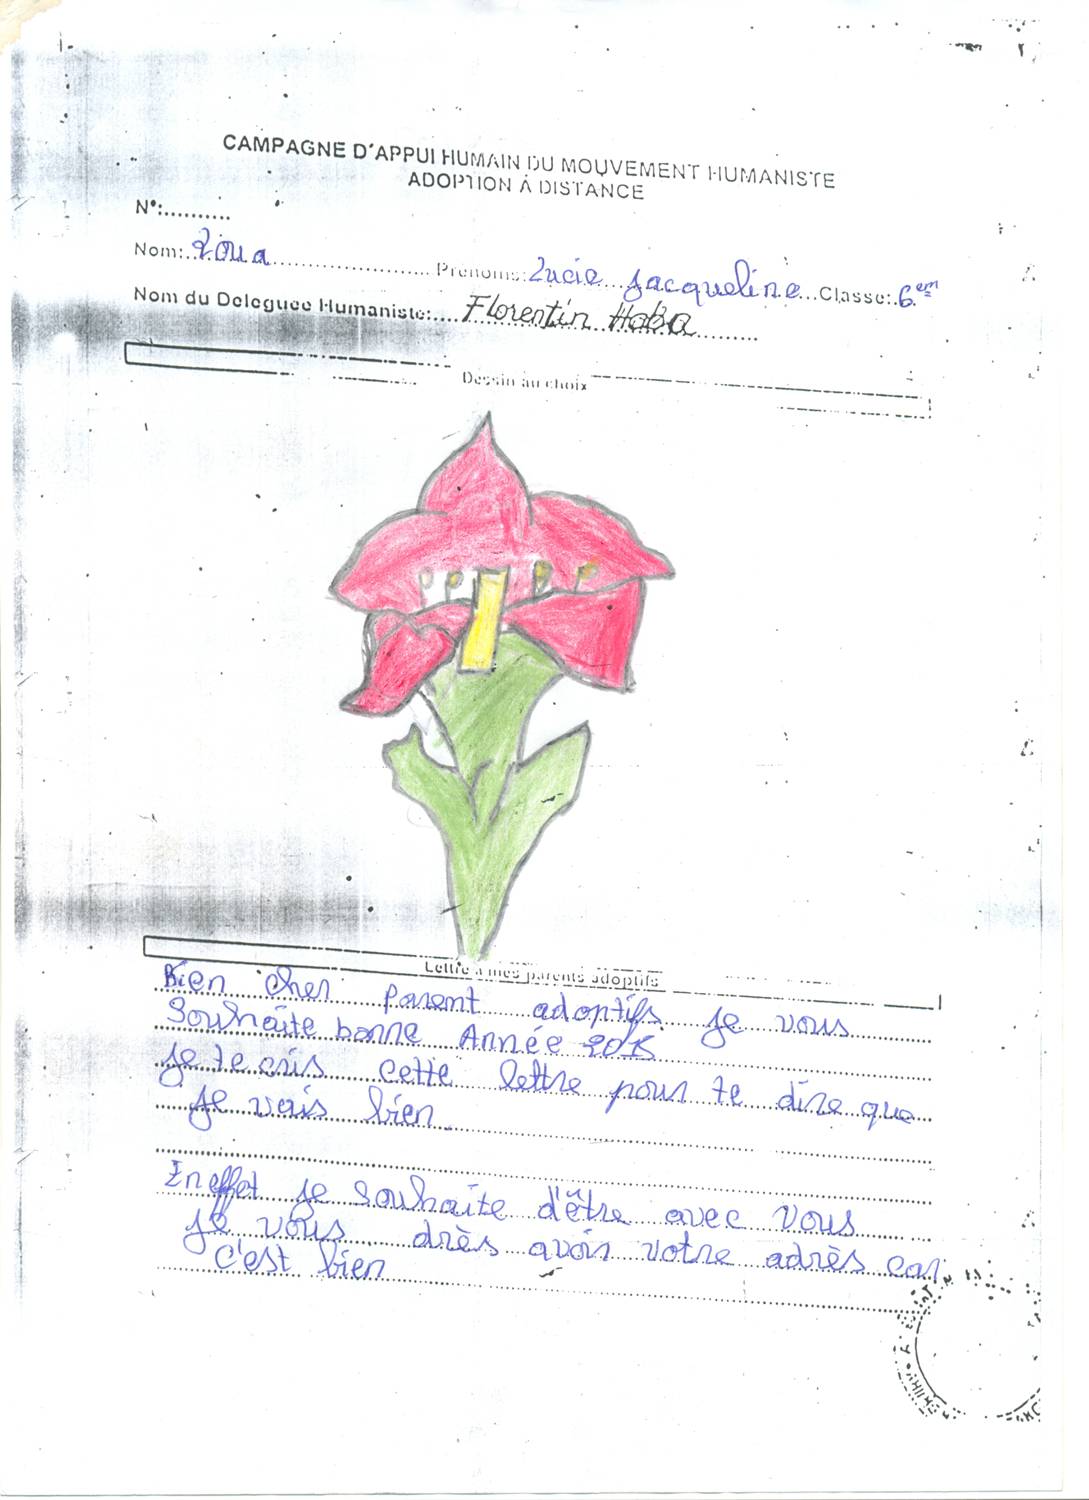 CAMPAGNE D'APPUI HUMAIN DU MOUVEMENT HUMANISTE
ADOPTION À DISTANCE
N°:..........
Nom: Zoua Prénoms: Lucie Jacqueline Classe: 6em
Nom du Deleguee Humaniste: Florentin Haba
Dessin au choix
Lettre a mes parents adoptifs
Bien cher parent adoptifs je vous
Souhaite bonne Année 2015
je te cris cette lettre pour te dire que
je vais bien.
En effet je souhaite d'être avec vous
je vous drès avoir votre adrès car
c'est bien